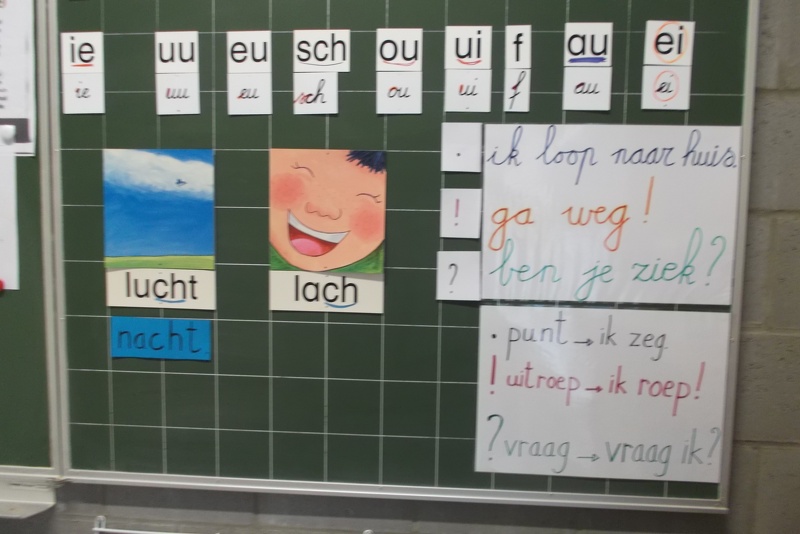 ie uu eu sch ou ui f au ei
ie uu eu sch ou ui f au ei
.
ik loop naar huis.
!
ga weg!
?
ben je ziek?
lucht
lach
nacht
. punt → ik zeg
! uitroep → ik roep!
? vraag → vraag ik?